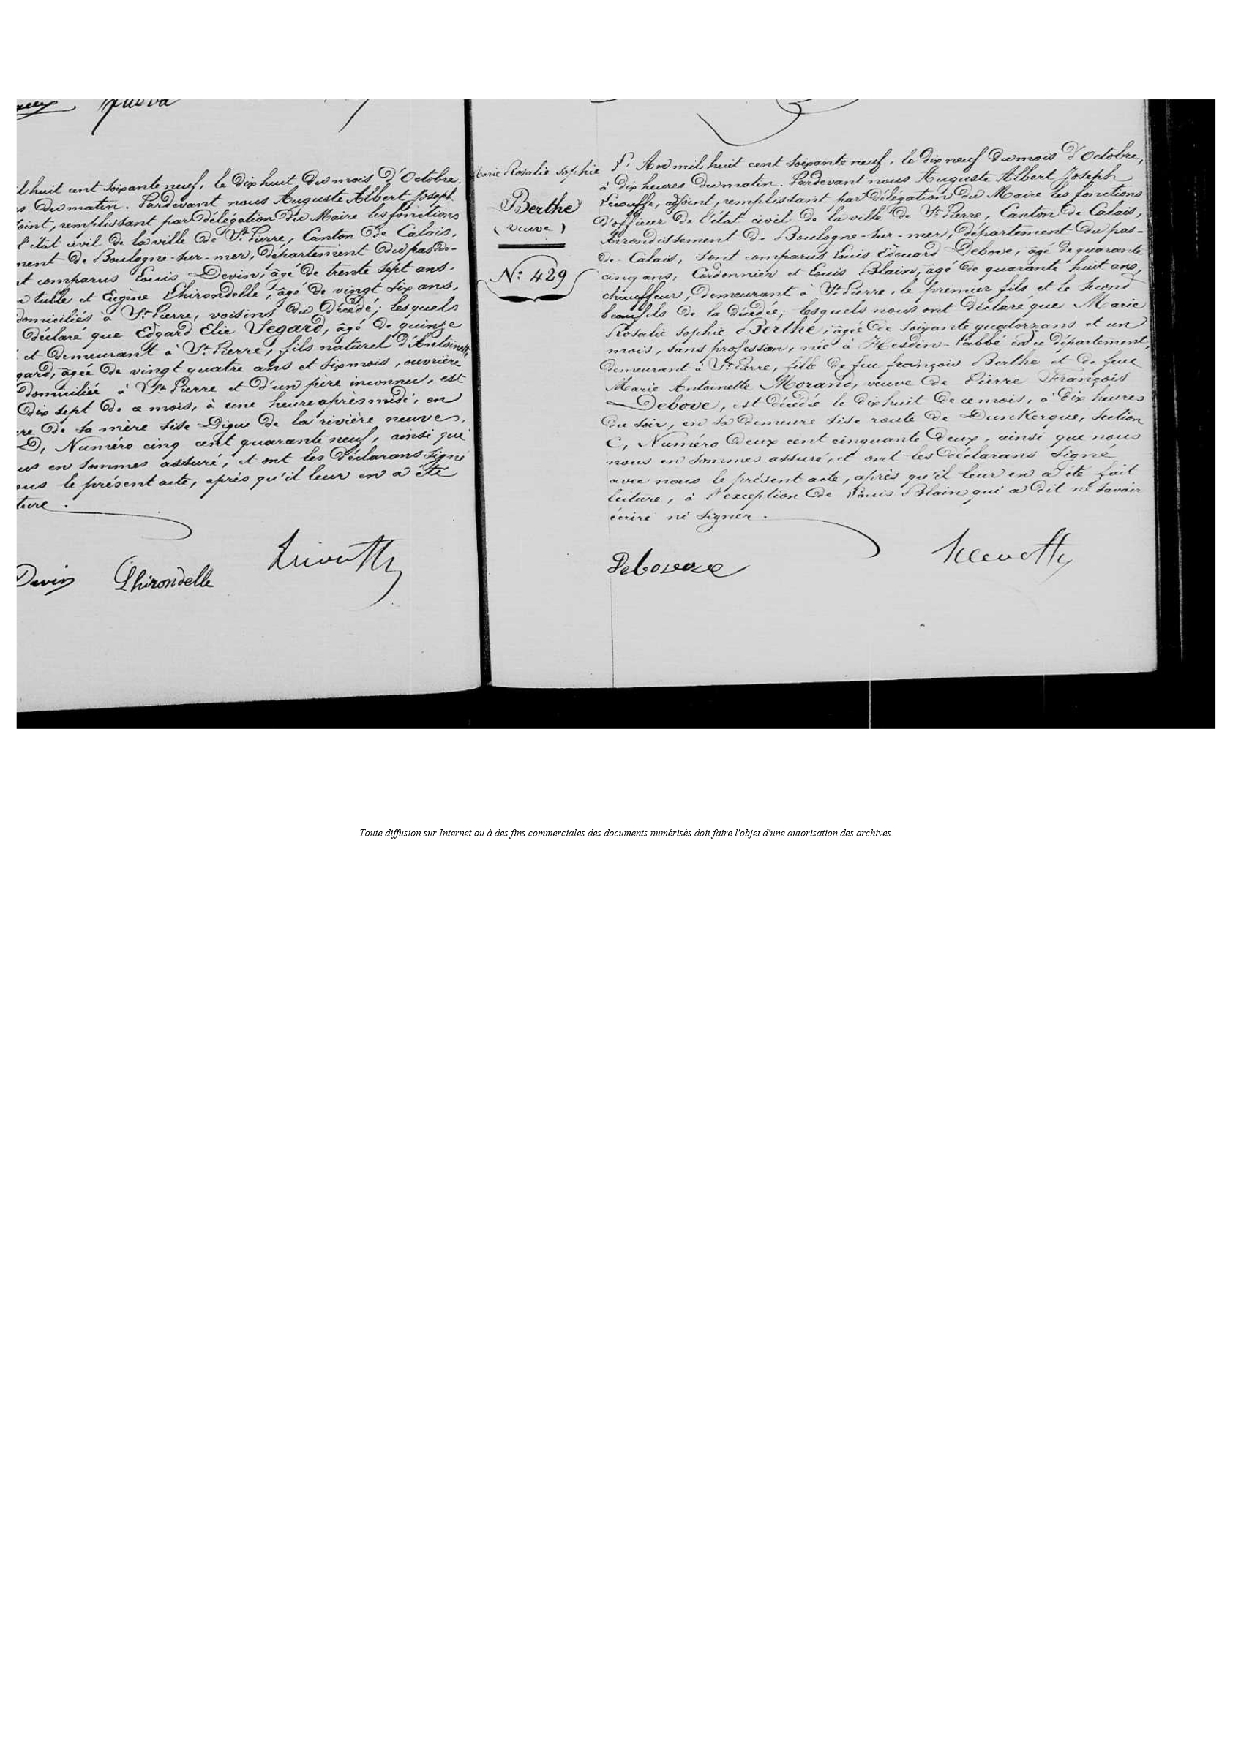 lhuit cent soixante neuf, le dix huit du mois d'Octobre
du matin. Pardevant nous Auguste Albert Joseph
joint, remplissant par délégation du Maire les fonctions
l'état civil de la ville de St Pierre, Canton de Calais,
ment de Boulogne-sur-mer, département du pas-
t comparus Louis Devin, âgé de trente sept ans,
tulle et Eugène Lhirondelle, âgé de vingt six ans,
domiciliés à St Pierre, voisins du Décédé; lesquels
déclaré que Edgard Elie Segard, âgé de quinze
et demeurant à St Pierre, fils naturel d'Antoinette
gard, agée de vingt quatre ans et six mois, ouvrière
domiciliée à St Pierre et d'un père inconnu, est
dix sept de ce mois, à une heure après midi, en
re de sa mère sise Digue de la rivière neuve,
D, Numéro cinq cent quarante neuf, ainsi que
us en sommes assuré, et ont les déclarans signé
ous le présent acte, après qu'il leur en a été
ture.
Devin Lhirondelle
Marie Rosalie Sophie
Berthe
(veuve)
N: 429
L'An mil huit cent soixante neuf, le dix neuf du mois d'Octobre,
à dix heures du matin. Pardevant nous Auguste Albert Joseph
adjoint, remplissant par délégation du Maire les fonctions
d'officier de l'état civil de la ville de St Pierre, Canton de Calais,
Arrondissement de Boulogne-sur-mer, département du pas-
de-Calais, sont comparus Louis Edouard Debove, âgé de quarante
cinq ans, Cordonnier et Louis Blain, âgé de quarante huit ans,
chauffeur, demeurant à St Pierre, le premier fils et le second
beau fils de la décédée, lesquels nous ont déclaré que Marie
Rosalie Sophie Berthe, agée de soixante quatorze ans et un
mois, sans profession, née à Hesdin-l'abbé en ce département,
demeurant à St Pierre, fille de feu françois Berthe et de feue
Marie Antoinette Morand, veuve de Pierre François
Debove, est décédée le dix huit de ce mois, à dix heures
du soir, en sa demeure sise route de Dunkerque, section
C, Numéro deux cent cinquante deux, ainsi que nous
nous en sommes assuré, et ont les déclarans signé
avec nous le présent acte, après qu'il leur en a été fait
lecture, à l'exception de Louis Blain qui a dit ne savoir
écrire ni signer.
Debovve
Toute diffusion sur Internet ou à des fins commerciales des documents numérisés doit faire l'objet d'une autorisation des archives